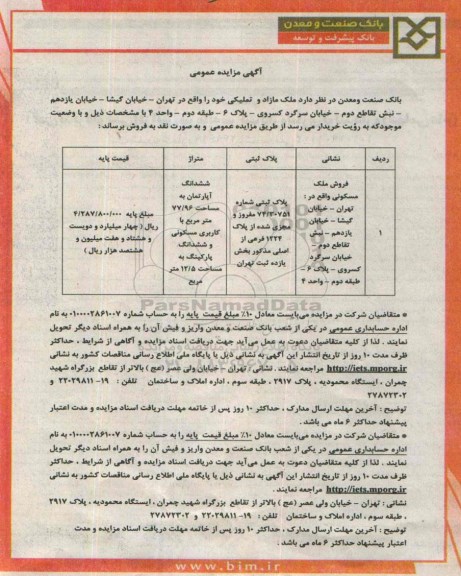 بانک صنعت و معدن
بانک پیشرفت و توسعه
آگهی مزایده عمومی
بانک صنعت ومعدن در نظر دارد ملک مازاد و تملیکی خود را واقع در تهران – خیابان گیشا – خیابان یازدهم
– نبش تقاطع دوم – خیابان سرگرد کسروی – پلاک ۶ – طبقه دوم – واحد ۴ با مشخصات ذیل و با وضعیت
موجودکه به رؤیت خریدار می رسد از طریق مزایده عمومی و به صورت نقد به فروش برساند :
ردیف
نشانی
پلاک ثبتی
متراژ
قیمت پایه
۱
فروش ملک
مسکونی واقع در :
تهران – خیابان
گیشا – خیابان
یازدهم – نبش
تقاطع دوم –
خیابان سرگرد
کسروی – پلاک ۶ –
طبقه دوم – واحد ۴
پلاک ثبتی شماره
۷۴/۳۰۷۵۱ مفروز و
مجزی شده از پلاک
۱۳۲۴ فرعی از
اصلی مذکور بخش
یازده ثبت تهران
ششدانگ
آپارتمان به
مساحت ۷۷/۹۶
متر مربع با
کاربری مسکونی
و ششدانگ
پارکینگ به
مساحت ۱۲/۵ متر
مربع
مبلغ پایه ۴/۲۸۷/۸۰۰/۰۰۰
ریال ( چهار میلیارد و دویست
و هشتاد و هفت میلیون و
هشتصد هزار ریال )
ParsNamadData
* متقاضیان شرکت در مزایده می‌بایست معادل ۱۰٪ مبلغ قیمت پایه را به حساب شماره ۰۱۰۰۰۰۲۸۶۱۰۰۷ به نام
اداره حسابداری عمومی در یکی از شعب بانک صنعت و معدن واریز و فیش آن را به همراه اسناد دیگر تحویل
نمایند . لذا از کلیه متقاضیان دعوت به عمل می‌آید جهت دریافت اسناد مزایده و آگاهی از شرایط ، حداکثر
ظرف مدت ۱۰ روز از تاریخ انتشار این آگهی به نشانی ذیل یا پایگاه ملی اطلاع رسانی مناقصات کشور به نشانی
http://iets.mporg.ir مراجعه نمایند . نشانی : تهران – خیابان ولی عصر (عج ) بالاتر از تقاطع بزرگراه شهید
چمران ، ایستگاه محمودیه ، پلاک ۲۹۱۷ ، طبقه سوم ، اداره املاک و ساختمان تلفن : ۱۹–۲۲۰۲۹۸۱۱ و
۲۷۸۷۲۳۰۲
توضیح : آخرین مهلت ارسال مدارک ، حداکثر ۱۰ روز پس از خاتمه مهلت دریافت اسناد مزایده و مدت اعتبار
پیشنهاد حداکثر ۶ ماه می باشد .
* متقاضیان شرکت در مزایده می‌بایست معادل ۱۰٪ مبلغ قیمت پایه را به حساب شماره ۰۱۰۰۰۰۲۸۶۱۰۰۷ به نام
اداره حسابداری عمومی در یکی از شعب بانک صنعت و معدن واریز و فیش آن را به همراه اسناد دیگر تحویل
نمایند . لذا از کلیه متقاضیان دعوت به عمل می‌آید جهت دریافت اسناد مزایده و آگاهی از شرایط ، حداکثر
ظرف مدت ۱۰ روز از تاریخ انتشار این آگهی به نشانی ذیل یا پایگاه ملی اطلاع رسانی مناقصات کشور به نشانی
http://iets.mporg.ir مراجعه نمایند .
نشانی : تهران – خیابان ولی عصر (عج ) بالاتر از تقاطع بزرگراه شهید چمران ، ایستگاه محمودیه ، پلاک ۲۹۱۷
، طبقه سوم ، اداره املاک و ساختمان تلفن : ۱۹–۲۲۰۲۹۸۱۱ و ۲۷۸۷۲۳۰۲
توضیح : آخرین مهلت ارسال مدارک ، حداکثر ۱۰ روز پس از خاتمه مهلت دریافت اسناد مزایده و مدت
اعتبار پیشنهاد حداکثر ۶ ماه می باشد .
www.bim.ir